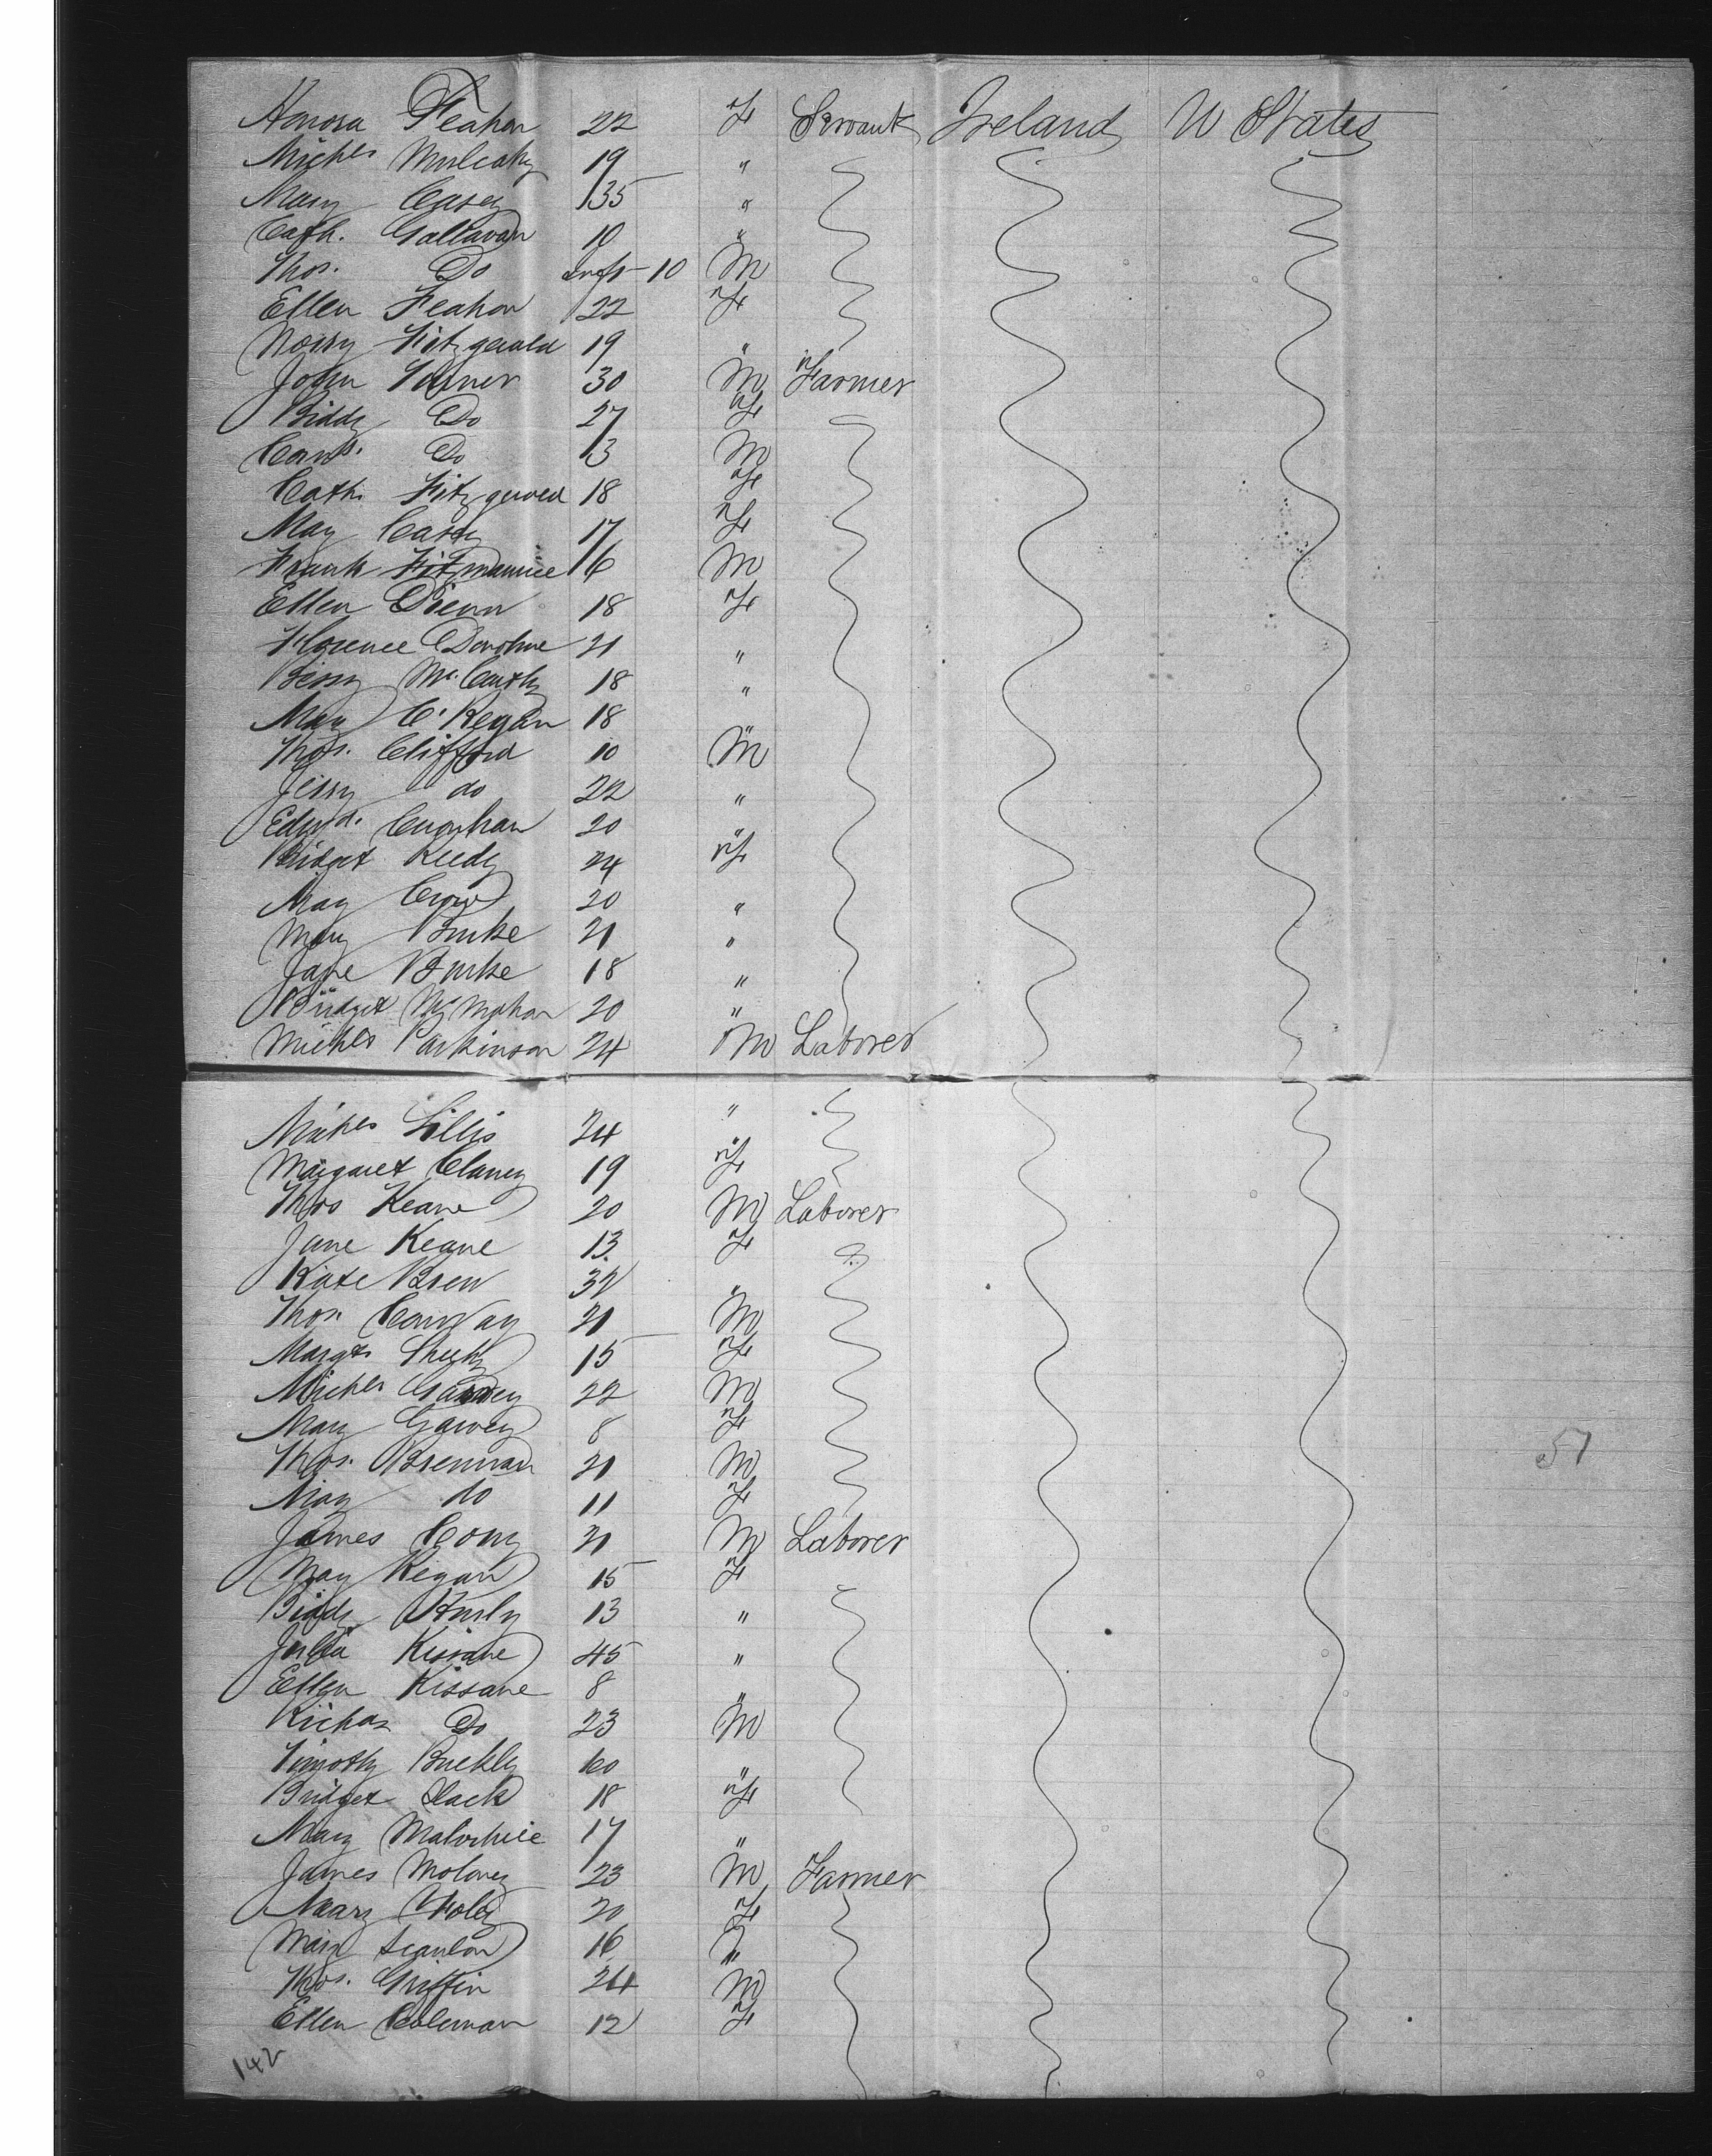 Honora Feahan 22 F Servant Ireland U States
Michl Mulcahy 19 "
Mary Casey 35 "
Cath. Gallavan 10 "
Thos. Do Inft 10 M
Ellen Feahan 22 F
Norry Fitzgerald 19 "
John 30 M Farmer
Biddy Do 27 F
Corns. Do 3 M
Cath. Fitzgerald 18 F
May Casey 17 F
Frank Fitzmaurice 16 M
Ellen 18 F
Florence Donohue 21 "
Bessy McCarthy 18 "
May O'Regan 18 "
Thos. Clifford 10 M
Jerry do 22 "
Edwd. 20 "
Bridget Reedy 24 F
May Crowe 20 "
Mary Burke 21 "
Jane Burke 18 "
Bridget McMahon 20 "
Michl Parkinson 24 M Laborer
Michl Lillis 24 "
Margaret Clancy 19 F
Thos Keane 20 M Laborer
Jane Keane 13 F
Kate Brew 32 "
Thos. Conway 21 M
Margt Sheehy 15 F
Michl Garvey 22 M
Mary Garvey 8 F
Thos. Brennan 21 M
May do 11 F
James Cony 21 M Laborer
May Regan 15 F
Biddy Hurly 13 "
Julia Kissane 45 "
Ellen Kissane 8 "
Richd Do 23 M
Timothy Buckly 60 "
Bridget Slack 18 F
Mary 17 "
James Moloney 23 M Farmer
Mary Foley 20 F
Mary Scanlon 16 "
Thos. Griffin 24 M
Ellen Coleman 12 F
51
142